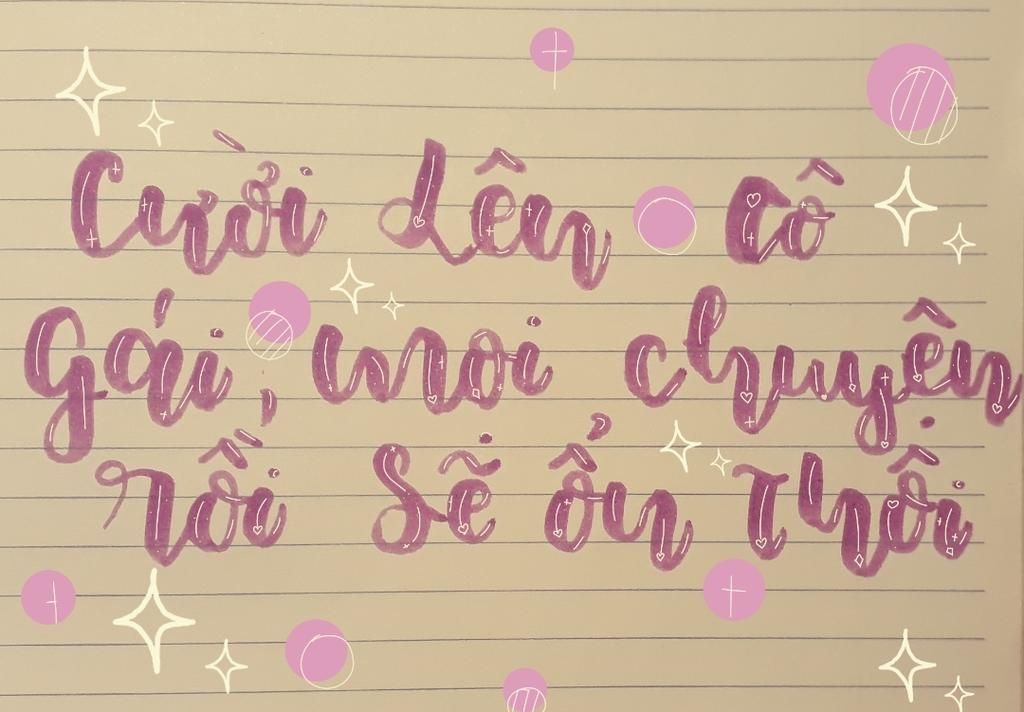 Cười Lên Cô
Gái, mọi chuyện
rồi Sẽ ổn Thôi